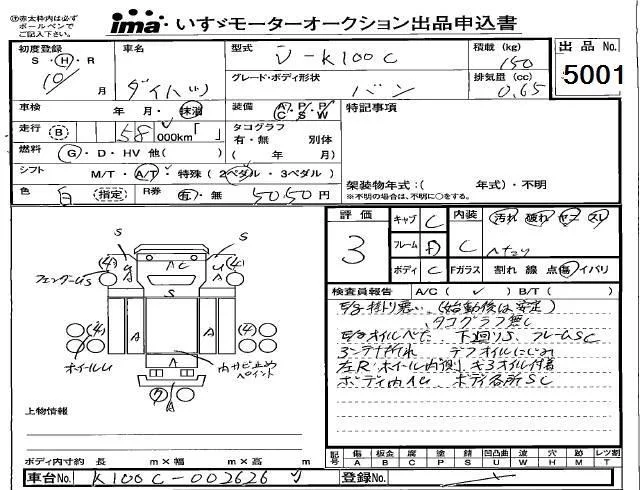 ※赤太枠内は必ずボールペンでご記入下さい。
ima・いすゞモーターオークション出品申込書
初度登録 車名 型式 積載(kg) 出品No.
S・H・R ダイハツ V-K100C 150 5001
10 月 グレード・ボディ形状 バン 排気量(cc) 0.65
車検 年・月・抹消 装備 A/C P/S P/W 特記事項
走行 B 58 000km「 」 タコグラフ
有・無 別体
燃料 G・D・HV 他( ) ( 年 月)
シフト M/T・A/T・特殊(2ペダル・3ペダル)
色 白 (指定) R券 有・無 5050円
架装物年式:( 年式)・不明
※不明の場合は、不明に○をする。
評価 3
キャブ C 内装 C 汚れ 破れ ヤニ スレ
フレーム D
ボディ C Fガラス 割れ 線 点傷 イバリ
検査員報告 A/C( ✓ ) B/T( )
E/g掛り悪い (始動後は安定)
タコグラフ無し
E/gオイルベた 下廻りS、フレームSC
デフオイルにじみ
左R ホイール内側 ギヤオイル付着
ボディ内AU ボディ各所SC
S S
(4) (4)
フェンダーUS
A C
S
A A
(4) (4)
ホイールU
A
内サビ止めペイント
ウ A
上物情報
ボディ内寸約 長 m×幅 m×高 m
記号 傷 A 板金 B 腐 C 塗 P 錆 S 凹凸曲 U 波 W 穴 H 跡 M レツ割 T
車台No. K100C-002626 登録No.